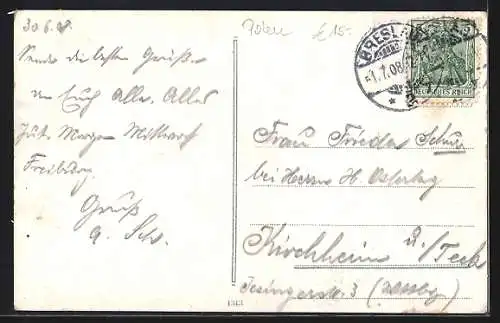 30.6.08
Polen
€ 15-
BRESLAU
1.7.08
DEUTSCHES REICH
Sende die besten Grüße
an Euch Alle. Alles
Gute Morgen Mittwoch
Freiburg
Gruß
Frau Frieda Schurr
bei Herrn H. Ostertag
Kirchheim u./Teck
Jesingerstr. 3 (Wttbg.)
1313